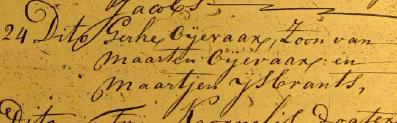 Jacobs
24 Dito Gerke Oijevaar, Zoon van
Maarten Oijevaar: en
Maartjen IJsbrants,
Dito Kornelis dogter